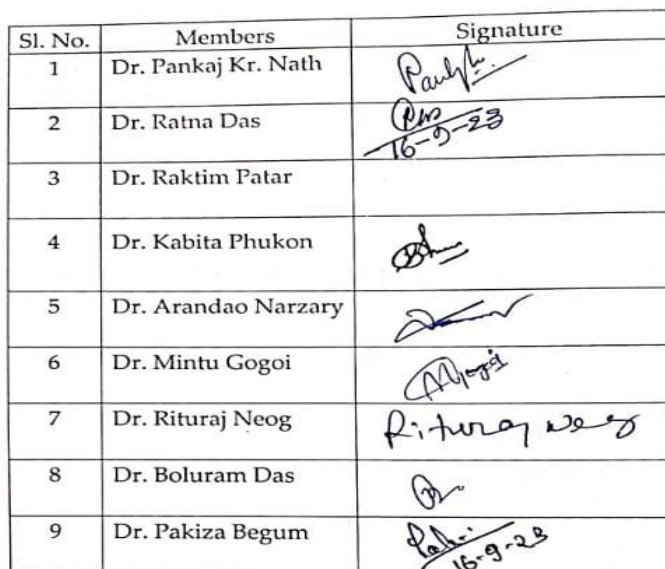 Sl. No. Members Signature
1 Dr. Pankaj Kr. Nath
2 Dr. Ratna Das
16-9-23
3 Dr. Raktim Patar
4 Dr. Kabita Phukon
5 Dr. Arandao Narzary
6 Dr. Mintu Gogoi MGogoi
7 Dr. Rituraj Neog Rituraj Neog
8 Dr. Boluram Das
9 Dr. Pakiza Begum
16-9-23